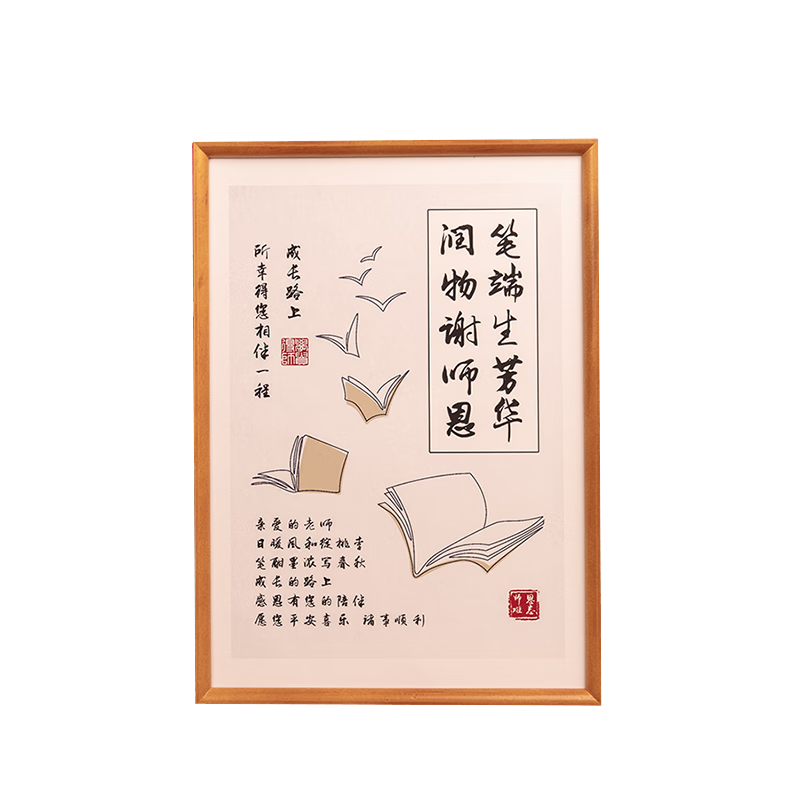 笔端生芳华
润物谢师恩
成长路上
所幸得您相伴一程
亲爱的老师
日暖风和绽桃李
笔酣墨浓写春秋
成长的路上
感恩有您的陪伴
愿您平安喜乐 诸事顺利